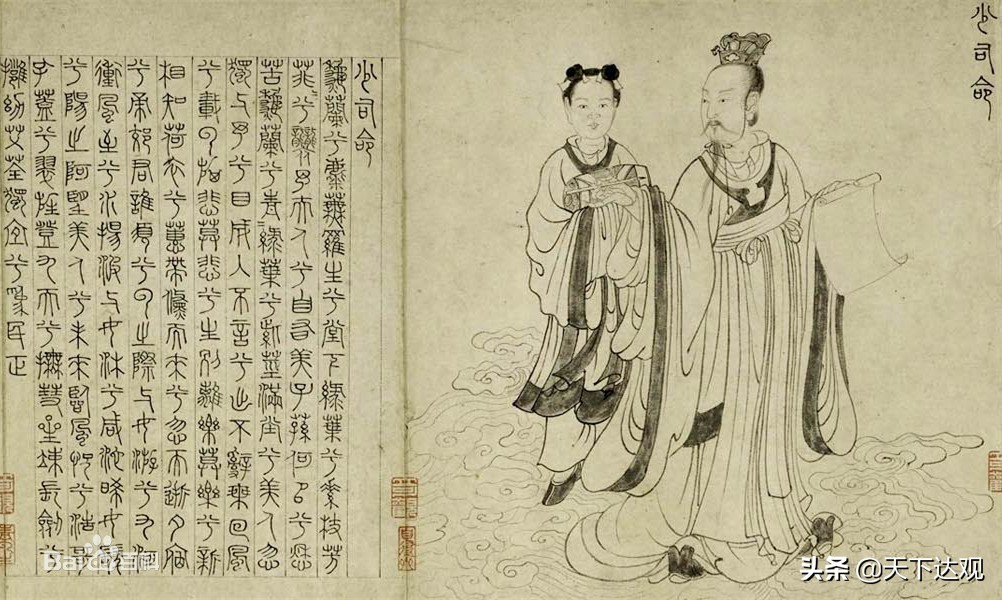 少司命
少司命
秋蘭兮麋蕪羅生兮堂下綠葉兮素枝芳
菲菲兮襲予夫人兮自有美子蓀何以兮愁
苦秋蘭兮青綠葉兮紫莖滿堂兮美人忽
獨與予兮目成入不言兮出不辭乘回風
兮載雲旗悲莫悲兮生別離樂莫樂兮新
相知荷衣兮蕙帶儵而來兮忽而逝夕宿
兮帝郊君誰須兮雲之際與女游兮九河
衝風至兮水揚波與女沐兮咸池晞女髮
兮陽之阿望美人兮未來臨風怳兮浩歌
孔蓋兮翠旌登九天兮撫彗星竦長劍兮
擁幼艾荃獨宜兮為民正
Baidu百科
头条 @天下达观